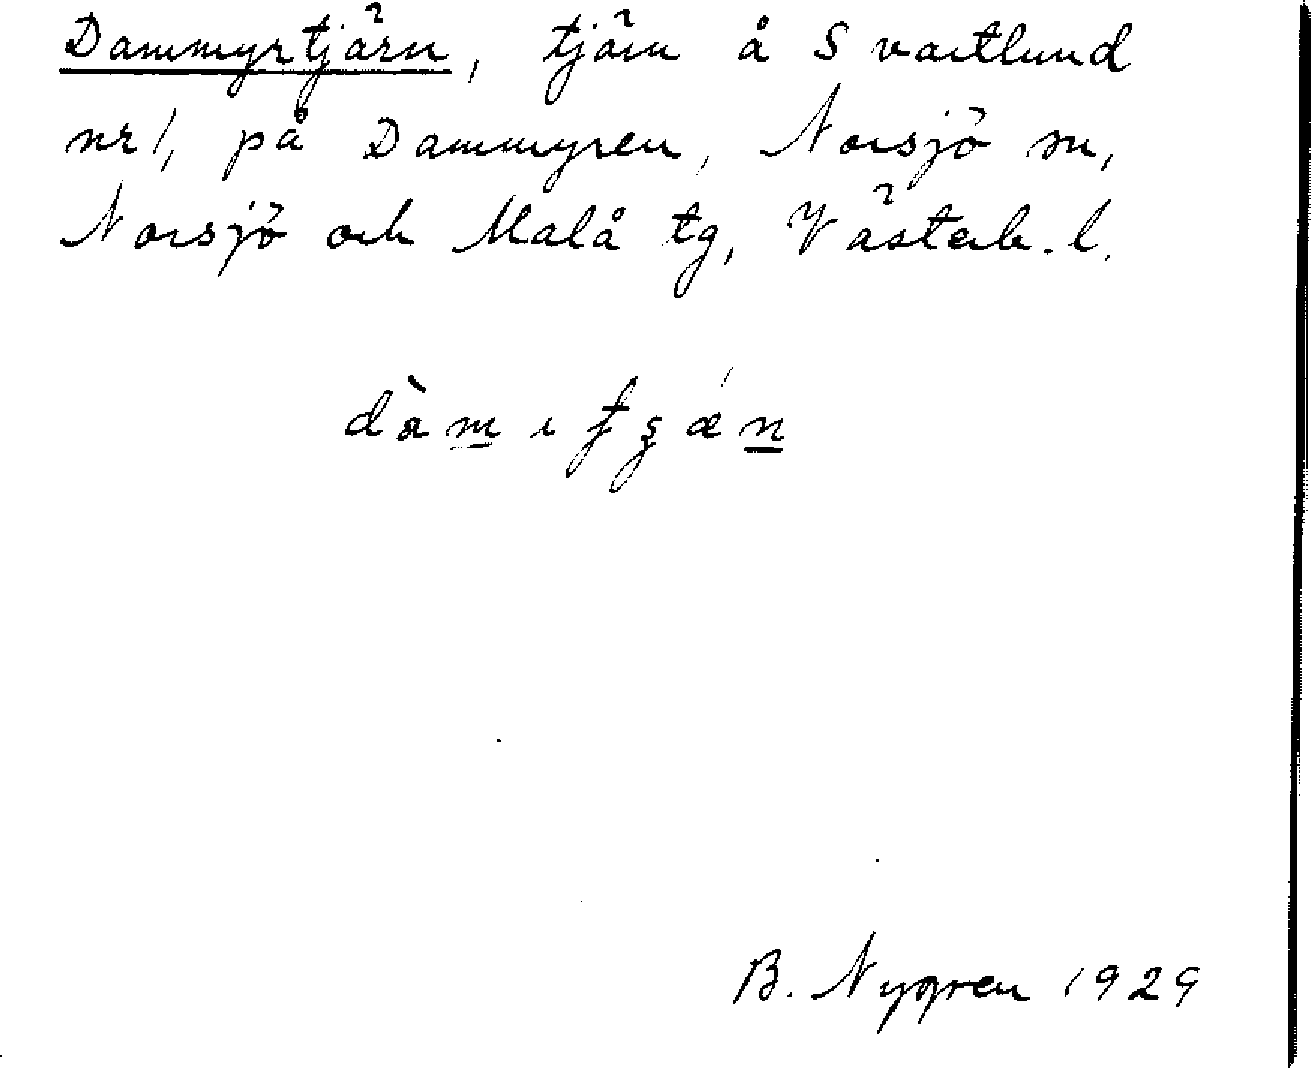 Dammyrtjärn, tjärn å Svartlund
nr 1, på Dammyren, Norsjö sn,
Norsjö och Malå tg, Västerb. l.
B. Nygren 1929